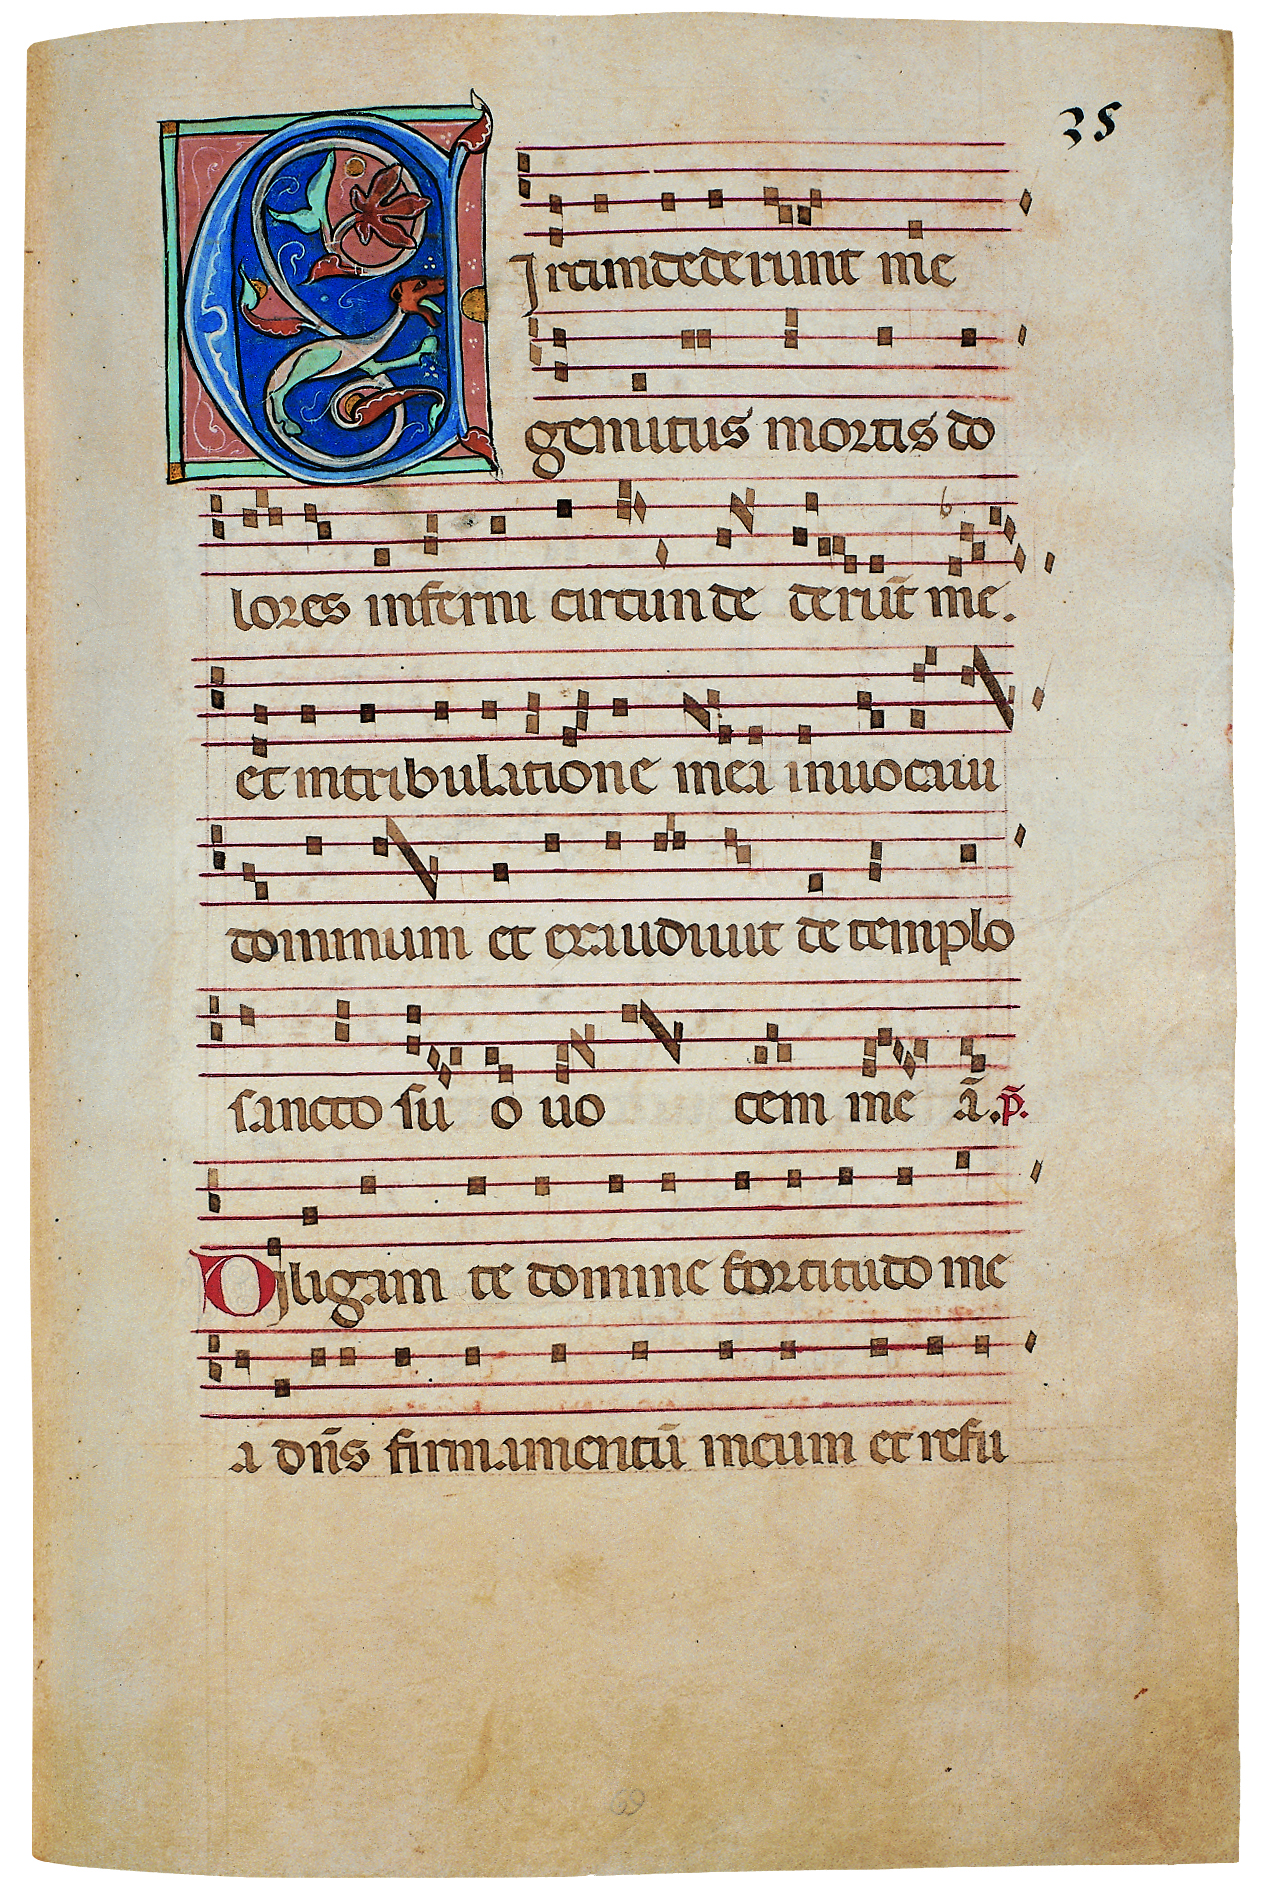 35
Circumdederunt me
gemitus mortis do
lores inferni circunde derūt me.
et in tribulatione mea inuocaui
dominum et exaudiuit de templo
sancto suo uocem meā. p̄.
Diligam te domine fortitudo me
a dn̄s firmamentū meum et refu
69